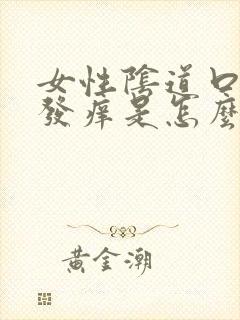 女性陰道口
發痒是怎麼
黃金潮